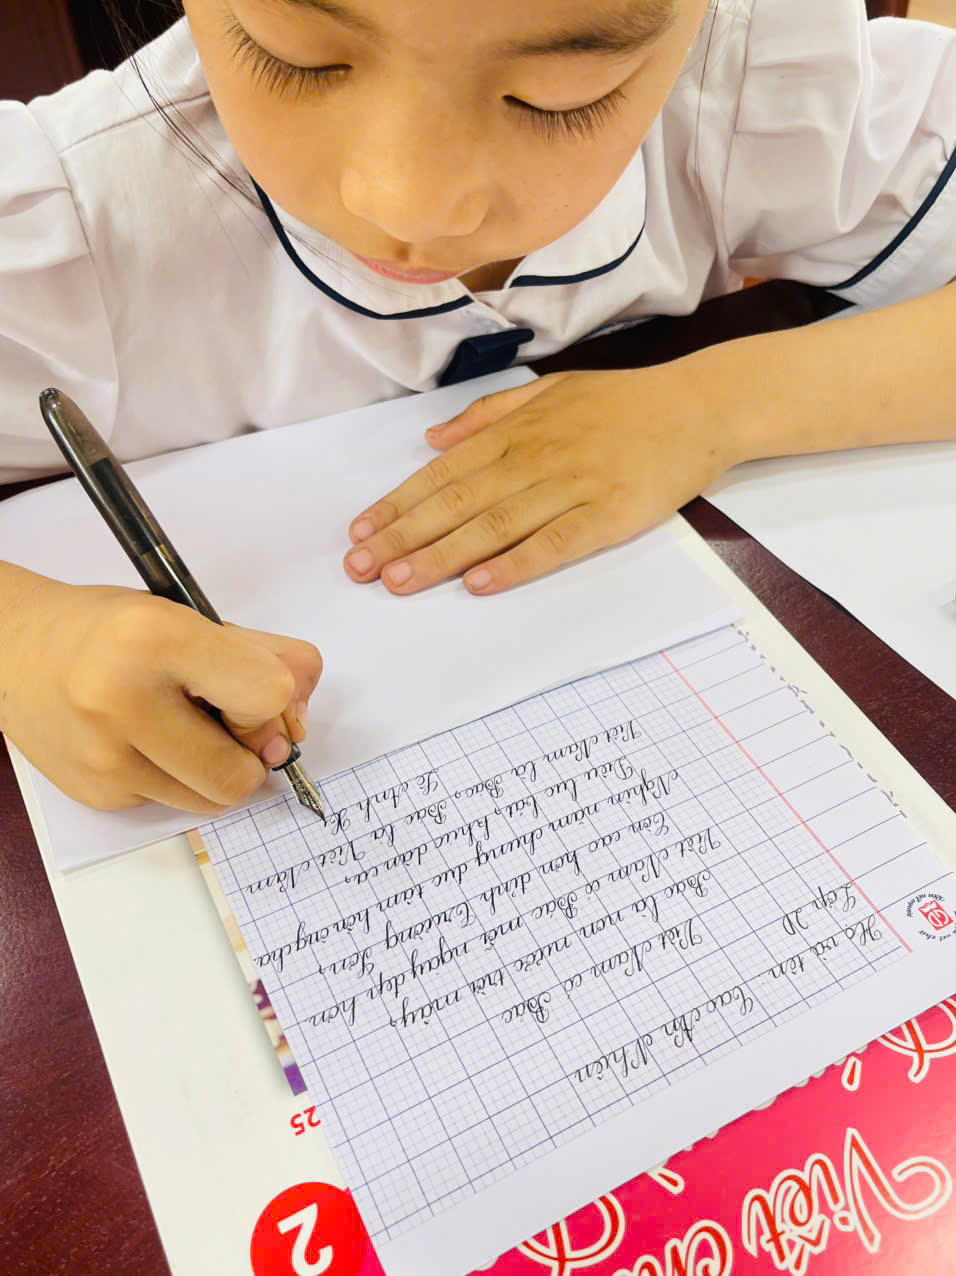 Họ và tên: Cao An Nhiên
Lớp 2D
Việt Nam có Bác
Bác là non nước trời mây,
Việt Nam có Bác mỗi ngày đẹp hơn.
Còn cao hơn đỉnh Trường Sơn,
Nghìn năm chung đúc tâm hồn ông cha.
Điệu lục bát, khúc dân ca,
Việt Nam là Bác, Bác là Việt Nam
Lê Anh
25
2
Việt